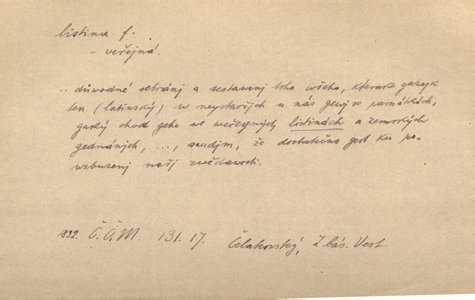 listina f.
- veřejná.
.. důwodné sebránj a sestawenj toho wšeho, kterak gazyk
ten (latinský) w neystaršjch u nás gewj se památkách,
gaký chod geho we weřegných listinách a zemských
gednánjch, ..., saudjm, že dostatečno gest ku po-
wzbuzenj našj zwědawosti.
1832. Č.Č.M. 131. 17. Čelakovský, Z bás. Vest.